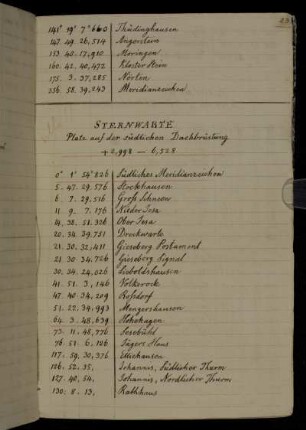 141° 19' 7"663 Thüdinghausen
147. 49. 26,514 Angerstein
153. 40. 57,910 Moringen
160. 42. 40,472 Kloster Stein
175. 3. 37,285 Nörten
356. 58. 39,243 Meridianzeichen
STERNWARTE
Platz auf der südlichen Dachbrüstung
+ 2,998 — 6,528
0° 1' 54"826 Südliches Meridianzeichen
5. 47. 29,576 Stockhausen
6. 7. 29,516 Gross Schneen
11. 9. 7,176 Nieder Jesa
14. 38. 51,326 Ober Jesa
20. 34. 39,751
21. 30. 32,411 Gieseberg Postament
21. 30. 34,726 Gieseberg Signal
30. 34. 24,026 Sieboldshausen
41. 51. 3,146 Volkerode
47. 40. 34,209 Rosdorf
51. 23. 34,993 Mengershausen
64. 3. 48,639 Hohehagen
73. 11. 48,776 Jesebühl
76. 51. 6,106 Jägers Haus
117. 59. 30,376 Ellichausen
126. 52. 35, Johannis, Südlicher Thurm
127. 40. 54, Johannis, Nördlicher Thurm
130. 8. 13, Rathhaus